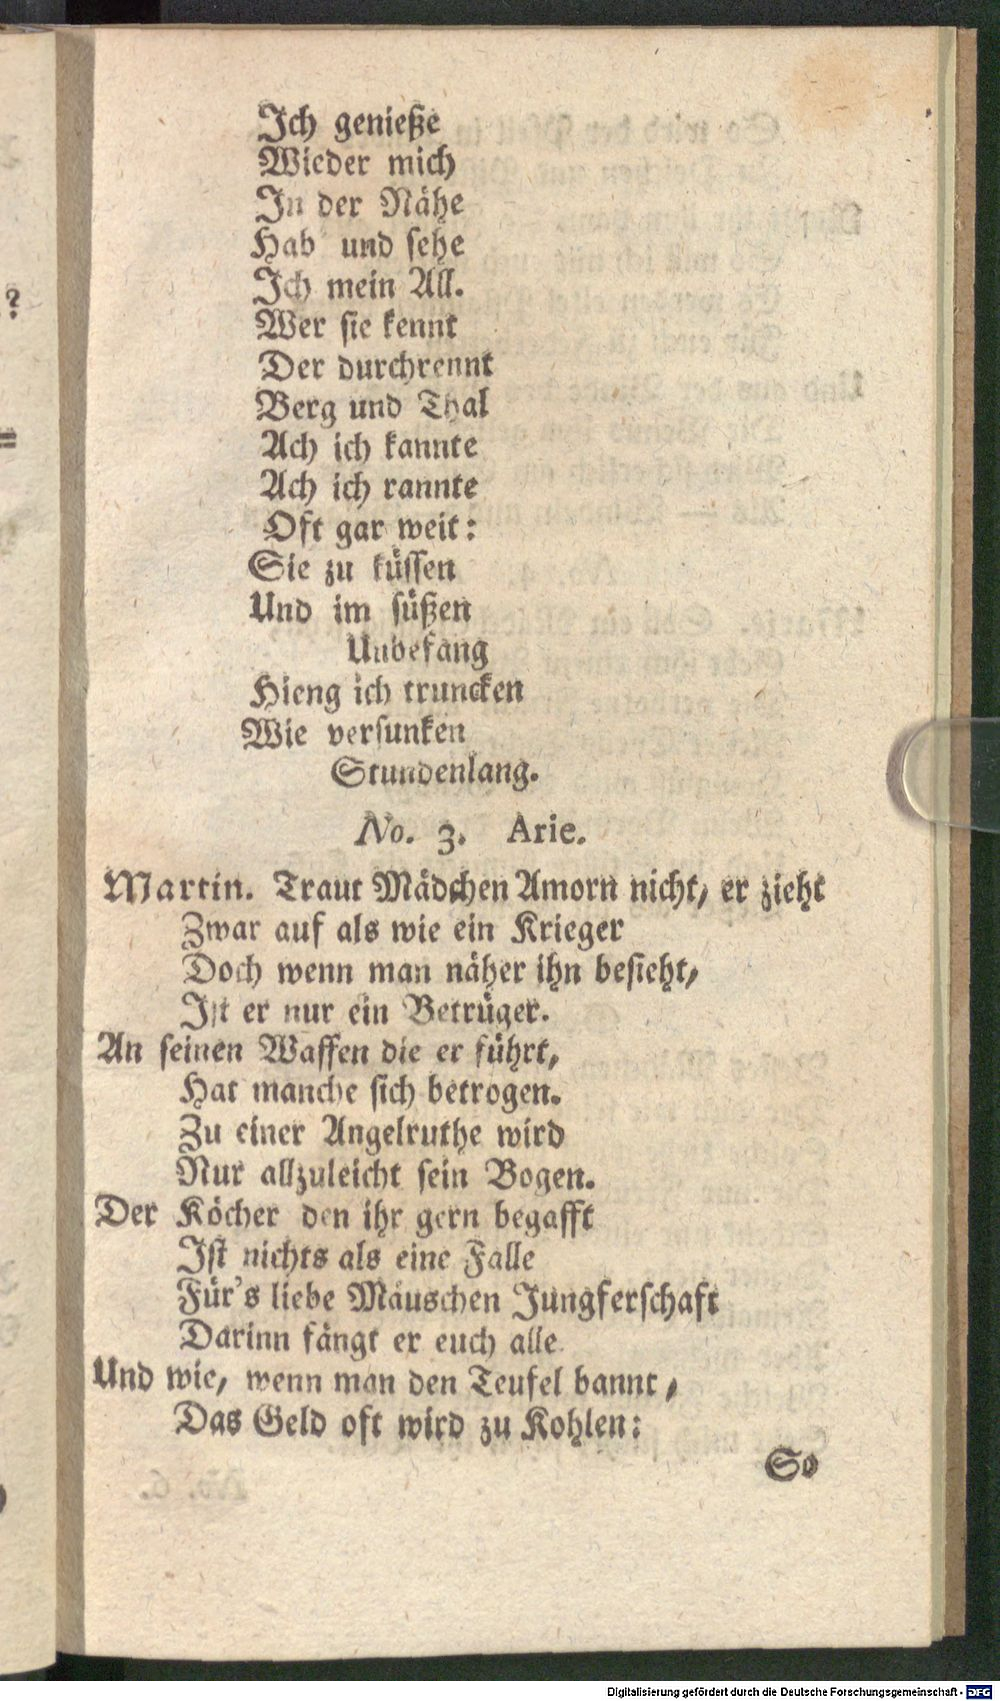 Ich genieße
Wieder mich
In der Nähe
Hab' und sehe
Ich mein All.
Wer sie kennt
Der durchrennt
Berg und Thal
Ach ich kannte
Ach ich rannte
Oft gar weit:
Sie zu küssen
Und im süßen
Unbefang
Hieng ich truncken
Wie versunken
Stundenlang.
No. 3. Arie.
Martin. Traut Mädchen Amorn nicht, er zieht
Zwar auf als wie ein Krieger
Doch wenn man näher ihn besieht,
Ist er nur ein Betrüger.
An seinen Waffen die er führt,
Hat manche sich betrogen.
Zu einer Angelruthe wird
Nur allzuleicht sein Bogen.
Der Köcher den ihr gern begafft
Ist nichts als eine Falle
Für's liebe Mäuschen Jungferschaft
Darinn fängt er euch alle.
Und wie, wenn man den Teufel bannt,
Das Geld oft wird zu Kohlen:
So
Digitalisierung gefördert durch die Deutsche Forschungsgemeinschaft - DFG